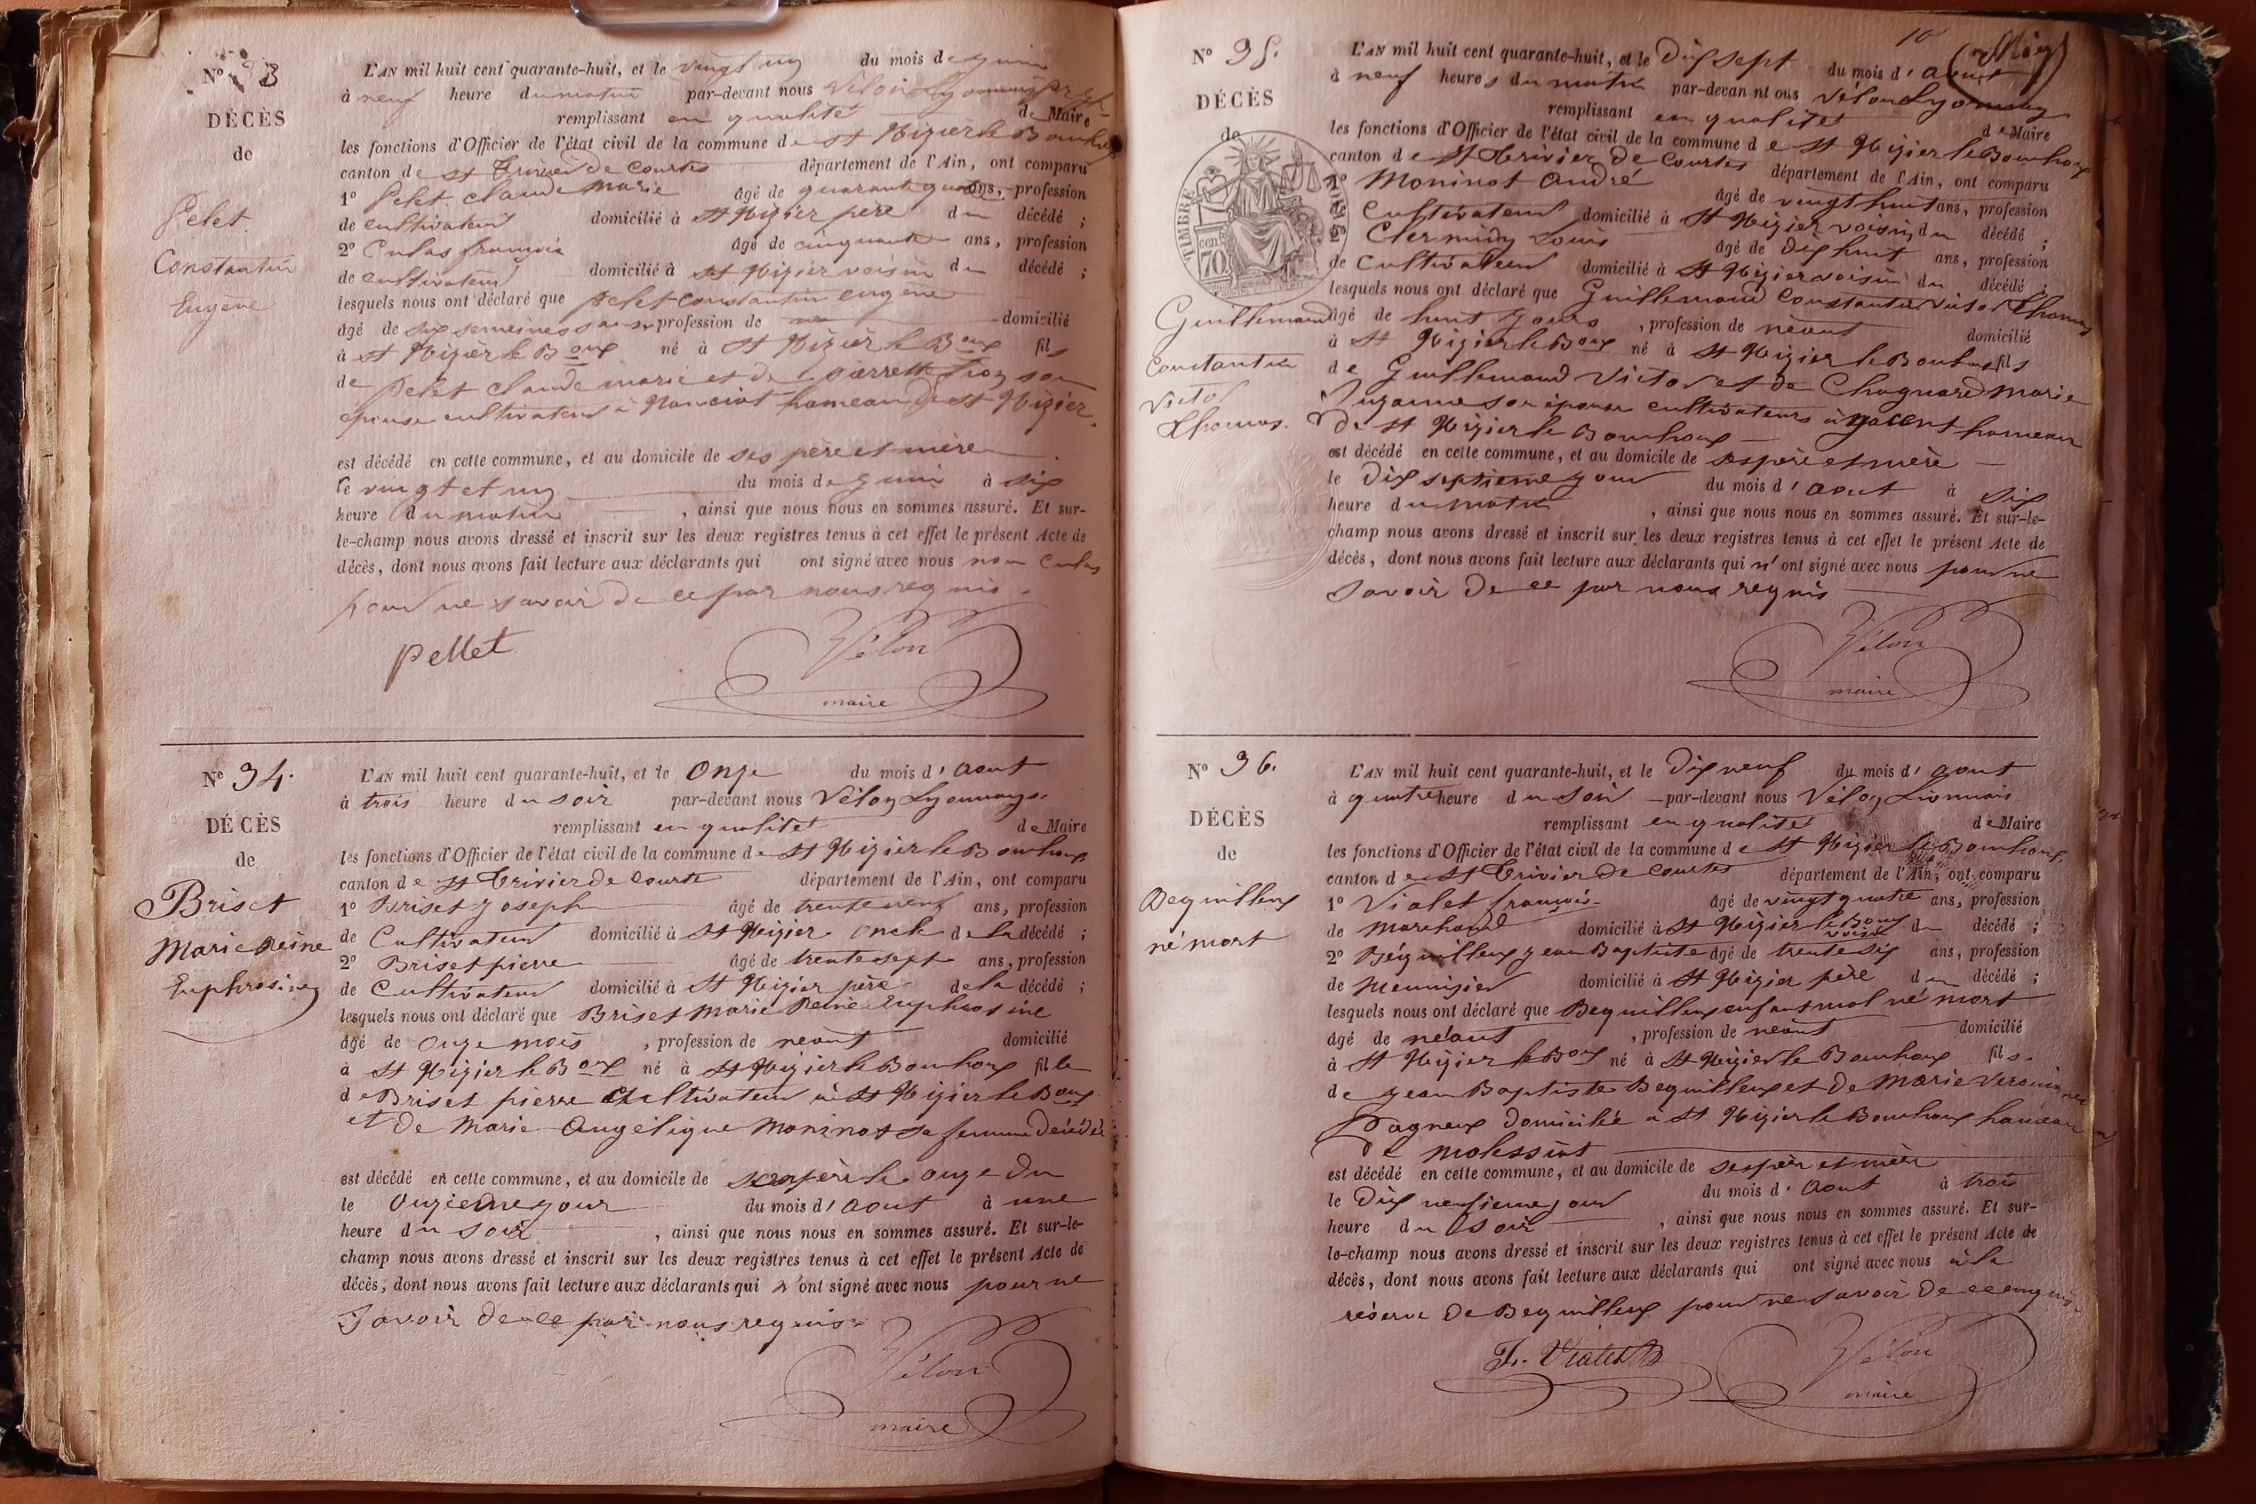 DÉCÈS
de
Pelet
Constantin
Eugène
L'AN mil huit cent quarante-huit, et le vingt un du mois de juin
à neuf heure du matin par-devant nous Vélon
remplissant en qualité de Maire
les fonctions d'Officier de l'état civil de la commune de St Nizier le Bouhoux
canton de St Trivier de Courtes département de l'Ain, ont comparu
1° Pelet Claude Marie âgé de quarante quatre ans, profession
de cultivateur domicilié à St Nizier père du décédé ;
2° Culas françois âgé de cinquante ans, profession
de cultivateur domicilié à St Nizier voisin du décédé ;
lesquels nous ont déclaré que Pelet Constantin eugène
âgé de six semeines profession de domicilié
à St Nizier le Boux né à St Nizier le Boux fils
de Pelet Claude marie et de pierrette son
epouse cultivateur à hameau de St Nizier
est décédé en cette commune, et au domicile de ses père et mère
le vingt et un du mois de juin à six
heure du matin, ainsi que nous nous en sommes assuré. Et sur-
le-champ nous avons dressé et inscrit sur les deux registres tenus à cet effet le présent Acte de
décès, dont nous avons fait lecture aux déclarants qui ont signé avec nous non Culas
pour ne savoir de ce par nous requis
Pellet
Vélon
maire
N° 34.
DÉCÈS
de
Briset
Marie Reine
Euphrosine
L'AN mil huit cent quarante-huit, et le onze du mois d'aout
à trois heure du soir par-devant nous Vélon Lyonnays
remplissant en qualitet de Maire
les fonctions d'Officier de l'état civil de la commune de St Nizier le Bouhoux
canton de St Trivier de Courte département de l'Ain, ont comparu
1° Briset Joseph âgé de trente neuf ans, profession
de Cultivateur domicilié à St Nizier oncle de la décédé ;
2° Briset pierre âgé de trente sept ans, profession
de Cultivateur domicilié à St Nizier père de la décédé ;
lesquels nous ont déclaré que Briset Marie Reine Euphrosine
âgé de onze mois, profession de néant domicilié
à St Nizier le Boux né à St Nizier le Bouhoux fille
de Briset pierre Cultivateur à St Nizier le Boux
et de Marie Angélique Moninot sa femme décédée
est décédé en cette commune, et au domicile de son père le onze du
le Onzieme jour du mois d'aout à une
heure du soir, ainsi que nous nous en sommes assuré. Et sur-le-
champ nous avons dressé et inscrit sur les deux registres tenus à cet effet le présent Acte de
décès, dont nous avons fait lecture aux déclarants qui n'ont signé avec nous pour ne
Savoir de ce par nous requis
Vélon
maire
N° 35.
DÉCÈS
de
TIMBRE
70
Guillemaud
Constantin
Victor
Thomas.
L'AN mil huit cent quarante-huit, et le Dix sept du mois d'aout
à neuf heures du matin par-devan nt ous Vélon Lyonnay
remplissant en qualitet de Maire
les fonctions d'Officier de l'état civil de la commune de St Nizier le Bouhoux
canton de St Trivier de Courtes département de l'Ain, ont comparu
1° Moninot André âgé de vingt huit ans, profession
Cultivateur domicilié à St Nizier voisin du décédé ;
Clermidy Louis âgé de dix huit ans, profession
de Cultivateur domicilié à St Nizier voisin du décédé ;
lesquels nous ont déclaré que Guillemaud Constantin Victor Thomas
âgé de huit jours, profession de néant domicilié
à St Nizier le Boux né à St Nizier le Bouhoux fils
de Guillemaud Victor et de Chagnard Marie
Suzanne son épouse cultivateurs à hameau
de St Nizier le Bouhoux
est décédé en cette commune, et au domicile de ses père et mère
le Dix septieme jour du mois d'aout à six
heure du matin, ainsi que nous nous en sommes assuré. Et sur-le-
champ nous avons dressé et inscrit sur les deux registres tenus à cet effet le présent Acte de
décès, dont nous avons fait lecture aux déclarants qui n'ont signé avec nous pour ne
Savoir de ce par nous requis
Vélon
maire
N° 36.
DÉCÈS
de
Bequilleux
né mort
L'AN mil huit cent quarante-huit, et le Dix neuf du mois d'aout
à quatre heure du soir par-devant nous Vélon Lionnais
remplissant en qualité de Maire
les fonctions d'Officier de l'état civil de la commune de St Nizier le Bouhoux
canton de St Trivier de Courtes département de l'Ain, ont comparu
1° Violet françois âgé de vingt quatre ans, profession
de Marchand domicilié à St Nizier le Boux voisin du décédé ;
2° Béquilleux jean Baptiste âgé de trente six ans, profession
de Meunizier domicilié à St Nizier père du décédé ;
lesquels nous ont déclaré que Bequilleux enfant mal né mort
âgé de néant, profession de néant domicilié
à St Nizier le Boux né à St Nizier le Bouhoux fils
de jean Baptiste Bequilleux et de Marie
Pagneux domiciliée à St Nizier le Bouhoux hameau
de Molessiat
est décédé en cette commune, et au domicile de ses père et mère
le Dix neufieme jour du mois d'aout à trois
heure du soir, ainsi que nous nous en sommes assuré. Et sur-
le-champ nous avons dressé et inscrit sur les deux registres tenus à cet effet le présent Acte de
décès, dont nous avons fait lecture aux déclarants qui ont signé avec nous à la
réserve de Bequilleux pour ne savoir de ce enquis
F. Violet
Vélon
maire